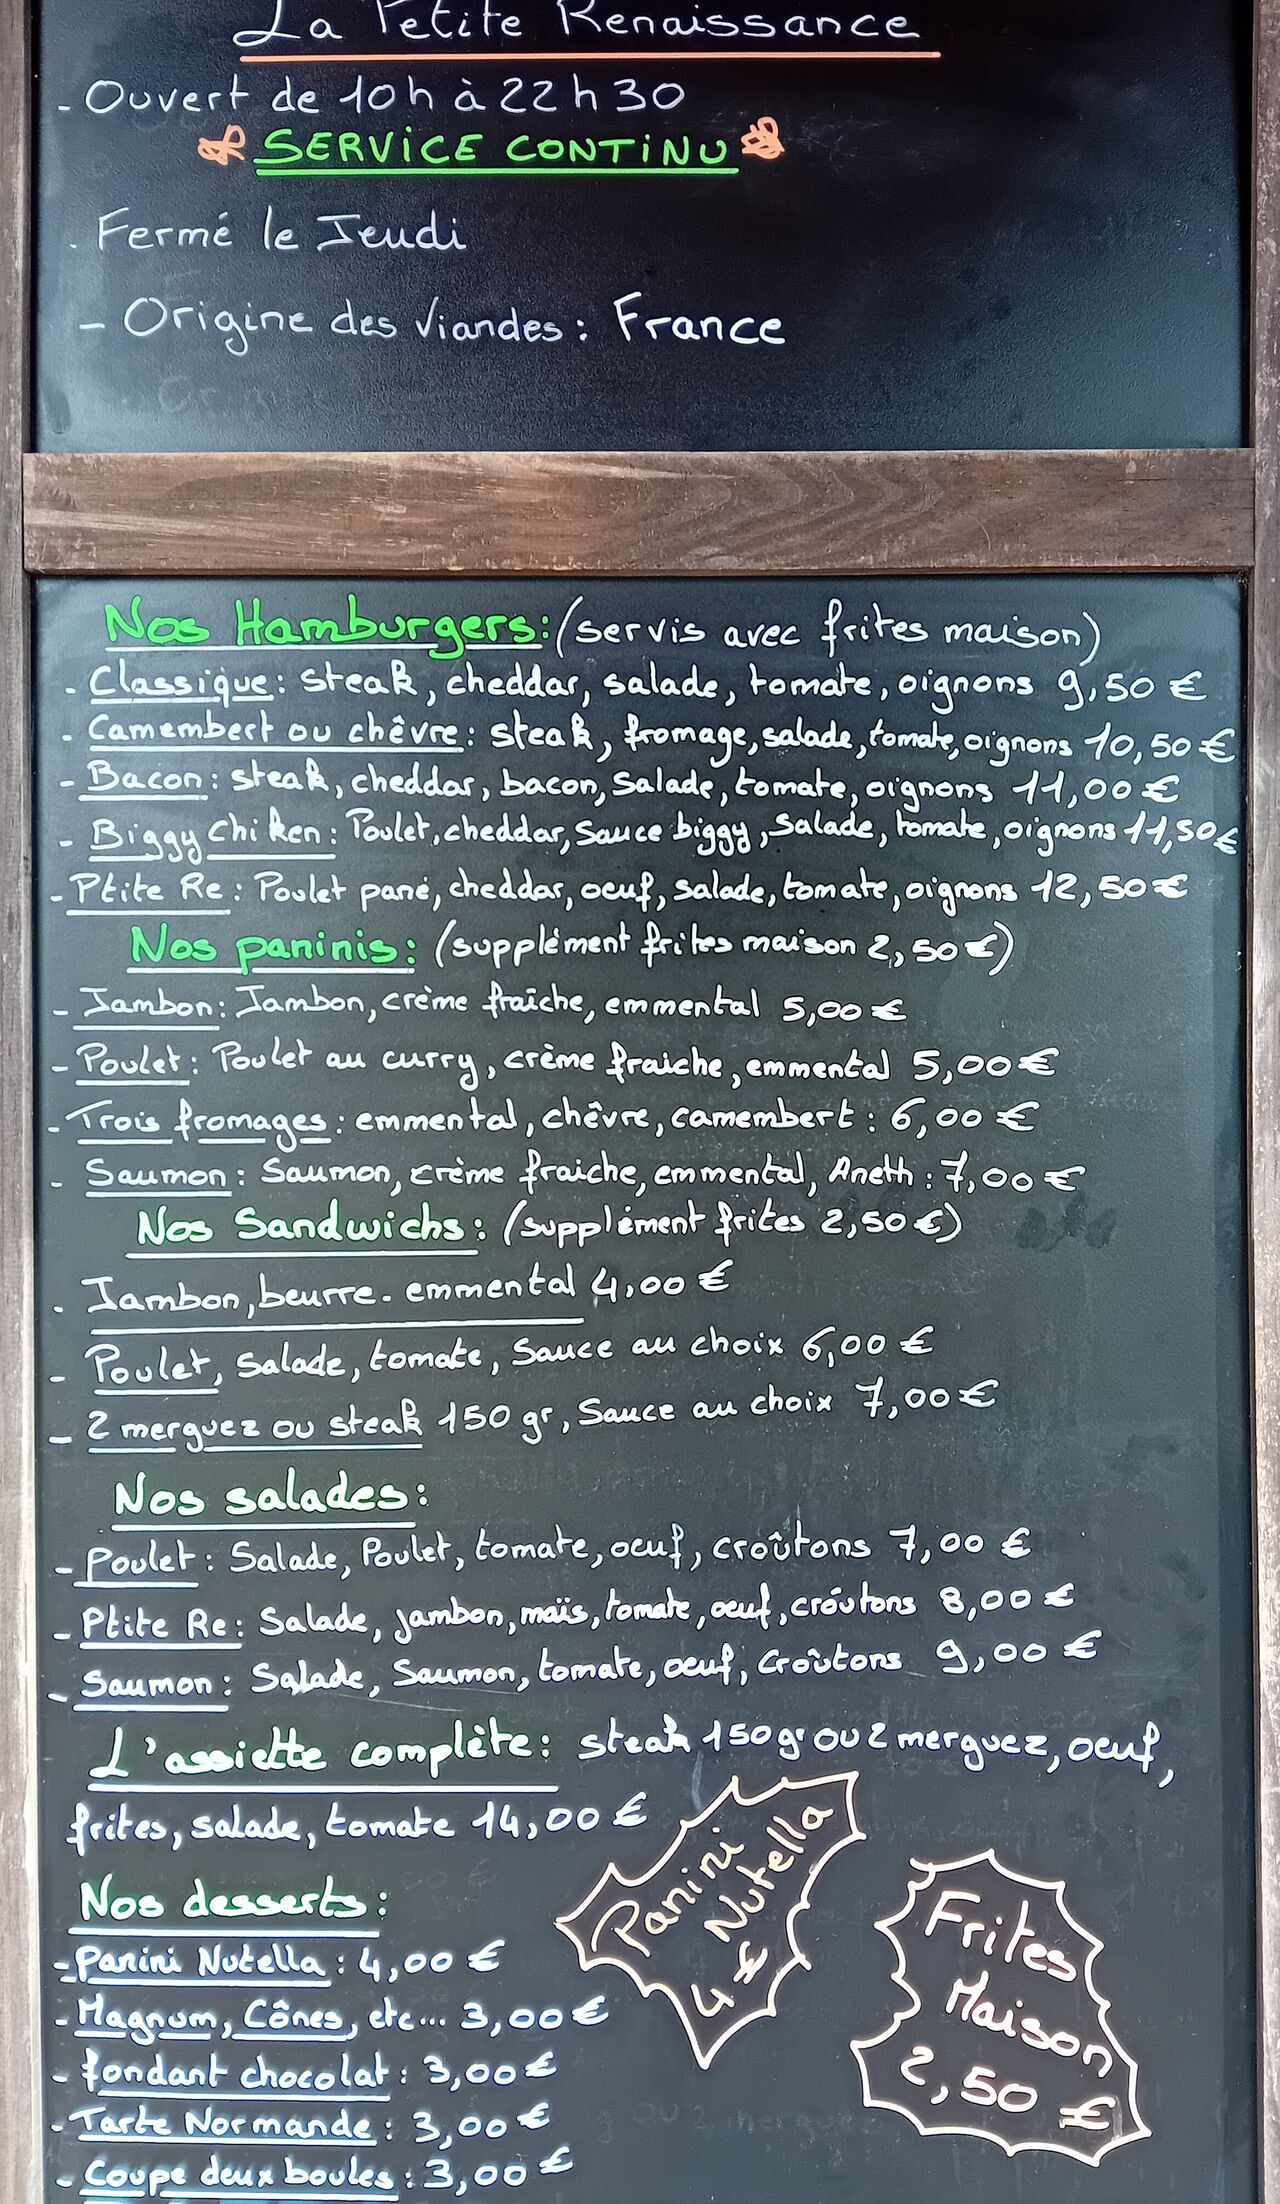 La Petite Renaissance
- Ouvert de 10h à 22h30
SERVICE CONTINU
. Fermé le Jeudi
- Origine des Viandes : France
Nos Hamburgers: (servis avec frites maison)
. Classique : steak, cheddar, salade, tomate, oignons 9,50 €
. Camembert ou chêvre : steak, fromage, salade, tomate, oignons 10,50 €
- Bacon : steak, cheddar, bacon, Salade, tomate, oignons 11,00 €
- Biggy Chiken : Poulet, cheddar, Sauce biggy, Salade, tomate, oignons 11,50 €
- Ptite Re : Poulet pané, cheddar, oeuf, salade, tomate, oignons 12,50 €
Nos paninis : (supplément frites maison 2,50 €)
- Jambon : Jambon, crème fraîche, emmental 5,00 €
- Poulet : Poulet au curry, crème fraiche, emmental 5,00 €
- Trois fromages : emmental, chêvre, camembert : 6,00 €
- Saumon : Saumon, crème fraiche, emmental, Aneth : 7,00 €
Nos Sandwichs : (supplément frites 2,50 €)
. Jambon, beurre. emmental 4,00 €
- Poulet, Salade, tomate, Sauce au choix 6,00 €
- 2 merguez ou steak 150 gr, Sauce au choix 7,00 €
Nos salades :
- Poulet : Salade, Poulet, tomate, oeuf, croûtons 7,00 €
- Ptite Re : Salade, jambon, maïs, tomate, oeuf, croûtons 8,00 €
- Saumon : Salade, Saumon, tomate, oeuf, Croûtons 9,00 €
L'assiette complète : steak 150gr ou 2 merguez, oeuf,
frites, salade, tomate 14,00 €
Nos desserts :
- Panini Nutella : 4,00 €
- Magnum, Cônes, etc... 3,00 €
- fondant chocolat : 3,00 €
- Tarte Normande : 3,00 €
- Coupe deux boules : 3,00 €
Panini
Nutella
4 €
Frites
Maison
2,50 €